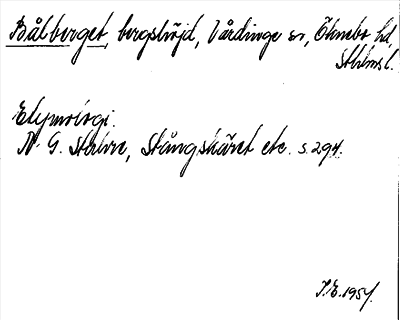 Bålberget, bergshöjd, Vårdinge sn, Öknebo hd,
Sthlms l.
Etymologi.
N. G. Stahre, Stångskäret etc. s. 294.
I.E. 1957.